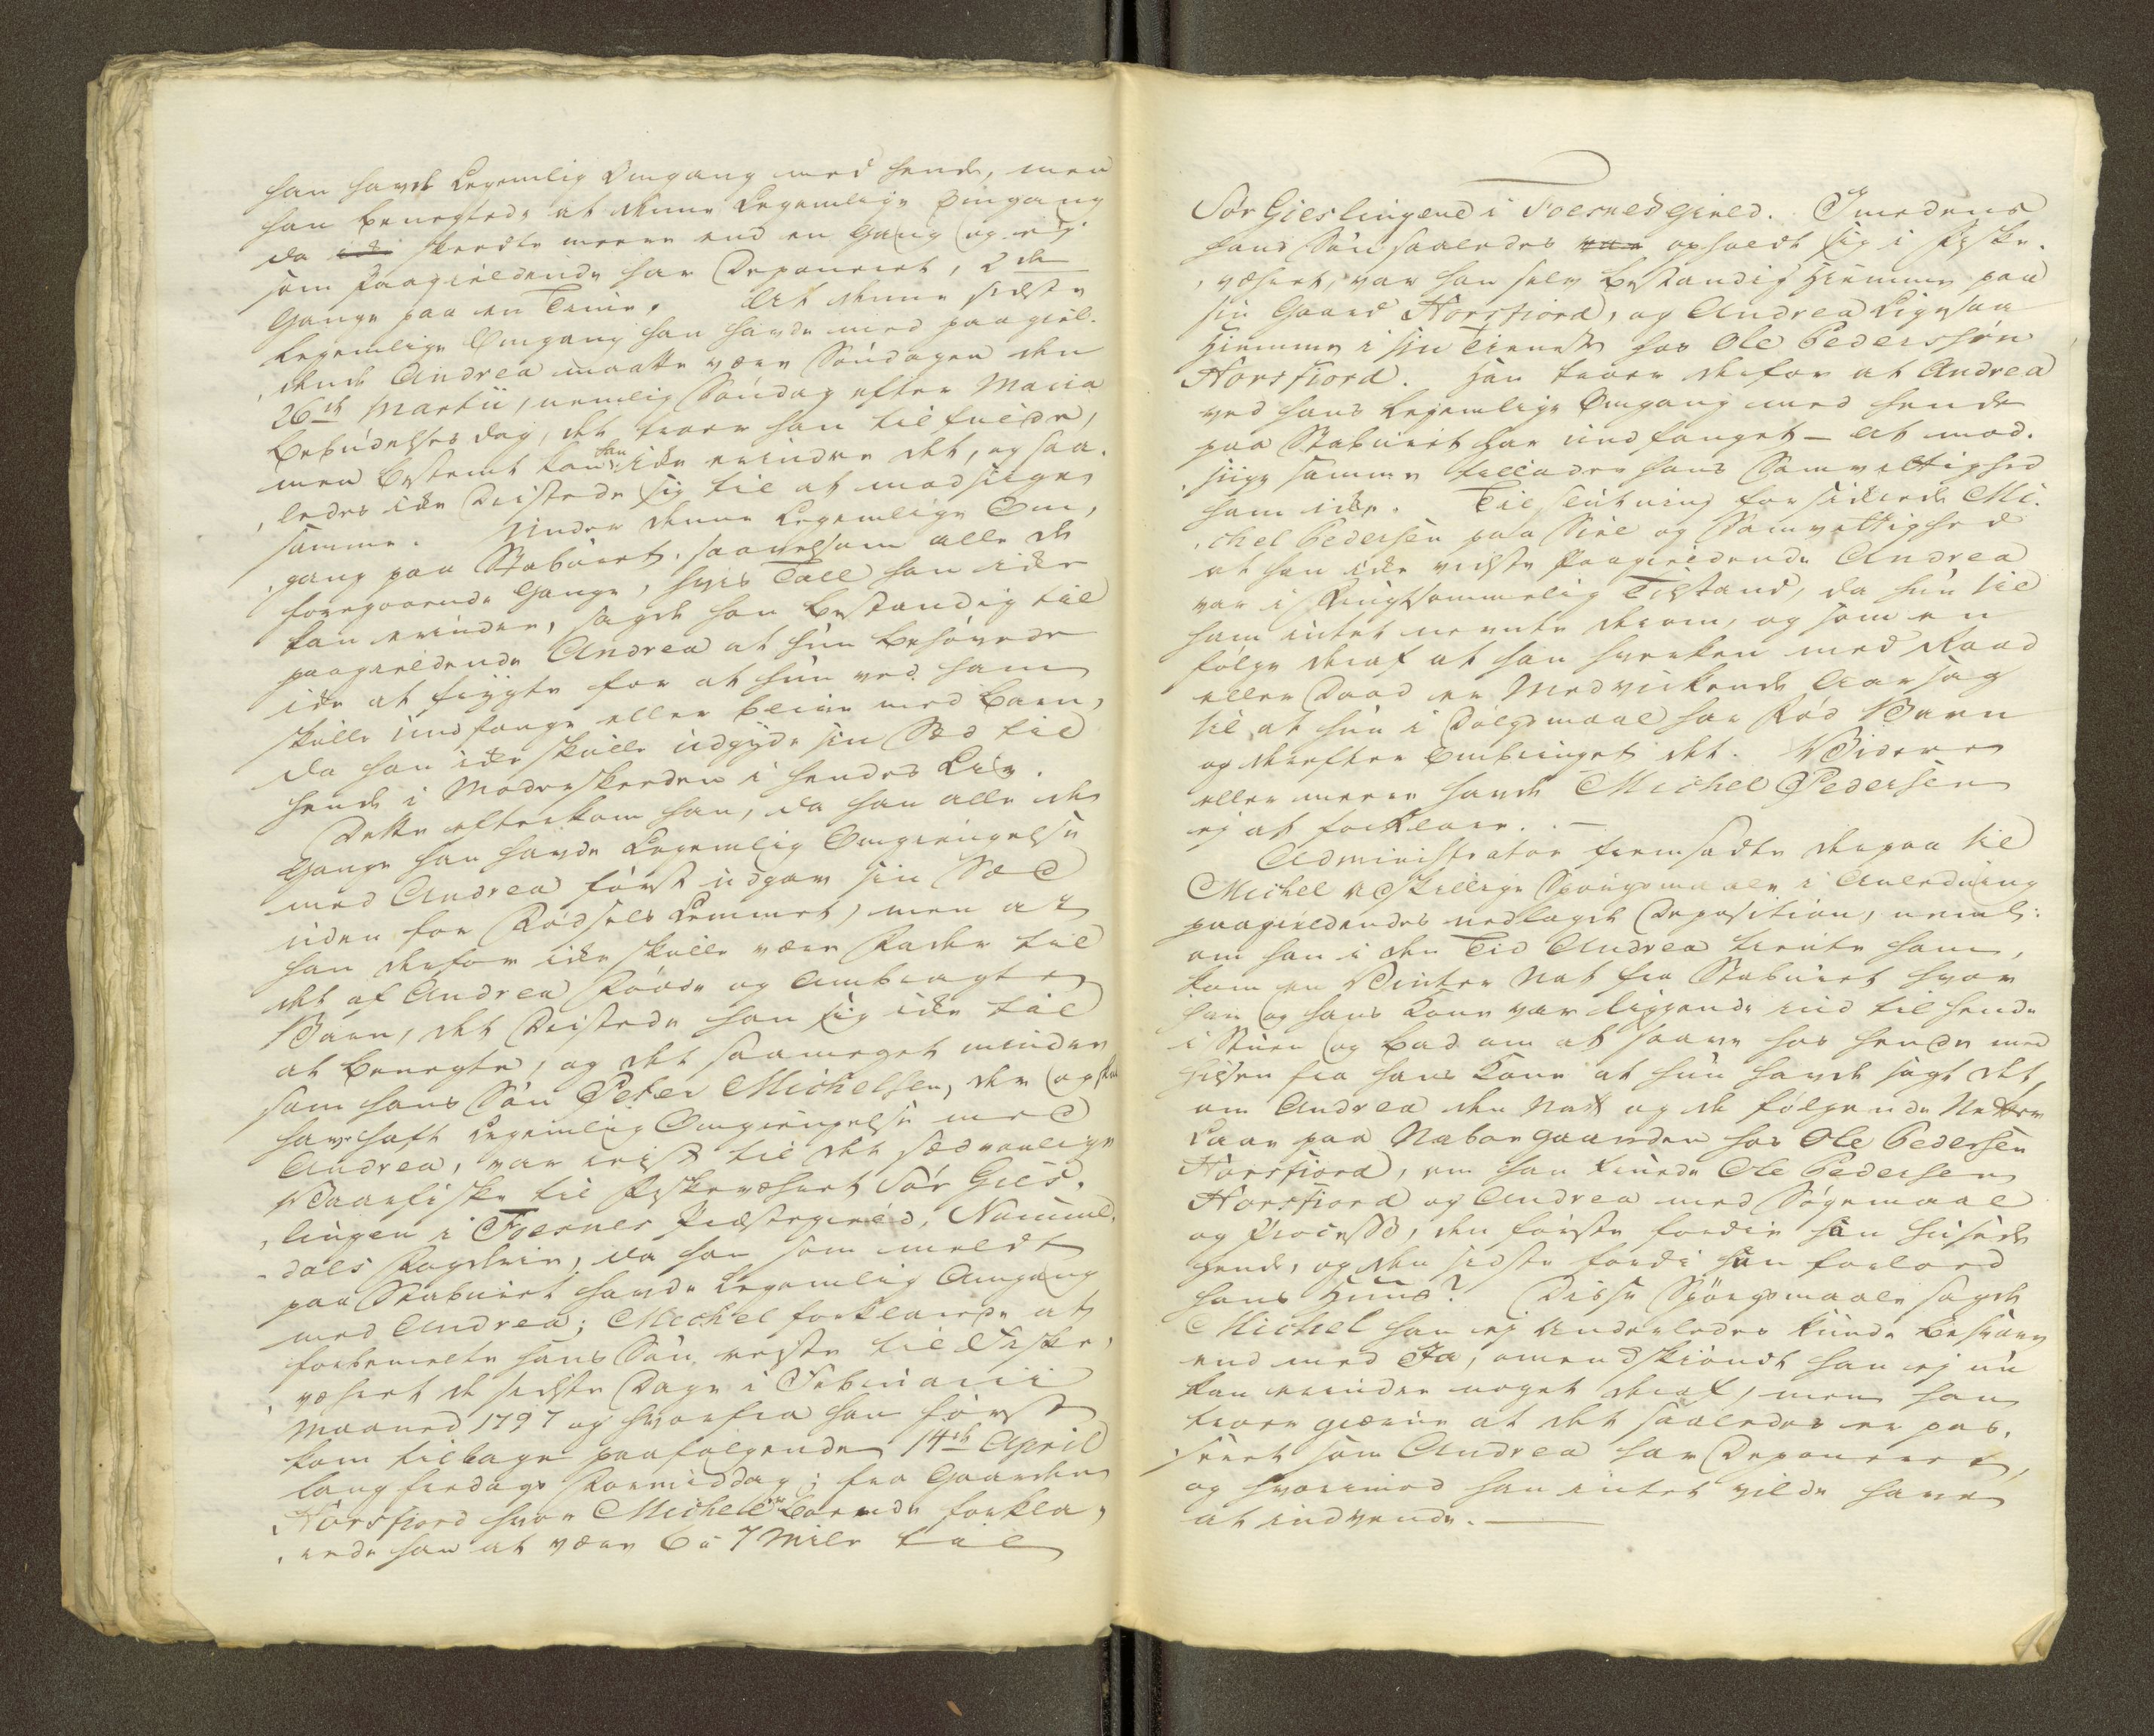 han havde Legemlig Omgang med hende, men
han benegtede at denne Legemlige Omgang
da skeedte meere end en Gang og ej
som Paagieldende har Deponeret, 2de
Gange paa en Time. At denne sidste
Legemlige Omgang han havde med paagiel-
dende Andrea maatte være Søndagen den
26de Martii, nemlig Søndag efter Maria
Bebudelses dag, det troer han tilfulde,
men bestemt kan han ikke erindre det, og saa-
ledes ikke Dristede sig til at modsige
samme. Under denne Legemlige Om-
gang paa Staburet, saavelsom alle de
foregaaende Gange, hvis Tall han ikke
kan erindre, sagde han bestandig til
paagieldende Andrea at hun behøvede
ikke at frygte for at hun ved ham
skulle undfange eller blive med Barn,
da han ikke skulle udgyde sin Sæd til
hende i Moderskeeden i hendes Liv.
Dette efterkom han, da han alle de
Gange han havde Legemlig Omgiengelse
med Andrea først udgav sin Sæd
uden for Fødsels Lemmet, men at
han derfor ikke skulle være Fader til
det af Andrea Fødde og Ombragte
Barn, det Dristede han sig ikke til
at benegte, og det saameget mindre
som hans Søn Peter Michelsen, der og skal
have haft Legemlig Omgiengelse med
Andrea, var reist til det sædvanlige
Vaarfiske til Fiskeværet Sør Gies-
lingen i Foesnes Præstegield, Nummel-
dals Fogderie, da han som meldt
paa Staburet havde Legemlig Omgang
med Andrea; Michel forklarede at
forbemelte hans Søn reiste til Fiske-
været de sidste Dage i Februarii
Maaned 1797 og hvorfra han først
kom tilbage paafølgende 14de April
langfredags Formiddag; fra Gaarden
Horsfiord hvor Michel er boende forkla-
rede han at være 6 a 7 Mile til
Sør Gieslingene i Foesnes Gield. Imedens
hans Søn saaledes opholdt sig i Fiske-
været, var han selv bestandig hiemme paa
sin Gaard Horsfiord, og Andrea Ligesaa
hiemme i sin Tieneste hos Ole Pedersøn
Horsfiord. Han troer derfor at Andrea
ved hans Legemlige Omgang med hende
paa Staburet har undfanget – at mod-
sige samme tillader hans Samvittighed
ham ikke. Til slutning forsikrede Mi-
chel Pedersen paa Siel og Samvittighed
at han ikke vidste Paagieldende Andrea
var i Frugtsommelig Tilstand, da hun til
ham intet nevnte derom, og som en
følge deraf at han hverken med Raad
eller Daad er Medvirkende Aarsag
til at hun i Dølgsmaal har Fød Barn
og derefter Ombringet det. Videre
eller meere havde Michel Pedersen
ej at forklare. –
Administrator fremsadte derpaa til
Michel adskillige Spørgsmaale i Anledning
paagieldendes nedlagde Deposition, neml:
om han i den Tid Andrea tiente ham,
kom en Vinter Nat fra Staburet hvor
han og hans Kone var liggende ind til hende
i Stuen og bad om at soave hos hende med
hilsen fra hans Kone at hun havde sagt det,
om Andrea den Natt og de følgende Netter
Laae paa Naboegaarden hos Ole Pedersen
Horsfiord, om han truede Ole Pedersen
Horsfiord og Andrea med Søgemaal
og Process, den første fordi han husede
hende, og den sidste fordi hun forlod
hans Huus? Disse Spørgsmaale sagde
Michel han ej Anderledes kunde besvare
end med Ja, omendskiøndt han ej nu
kan erindre noget deraf, men han
troer gierne at det saaledes er pas-
seret som Andrea har Deponeret,
og hvorimod han intet vilde have
at indvende. –